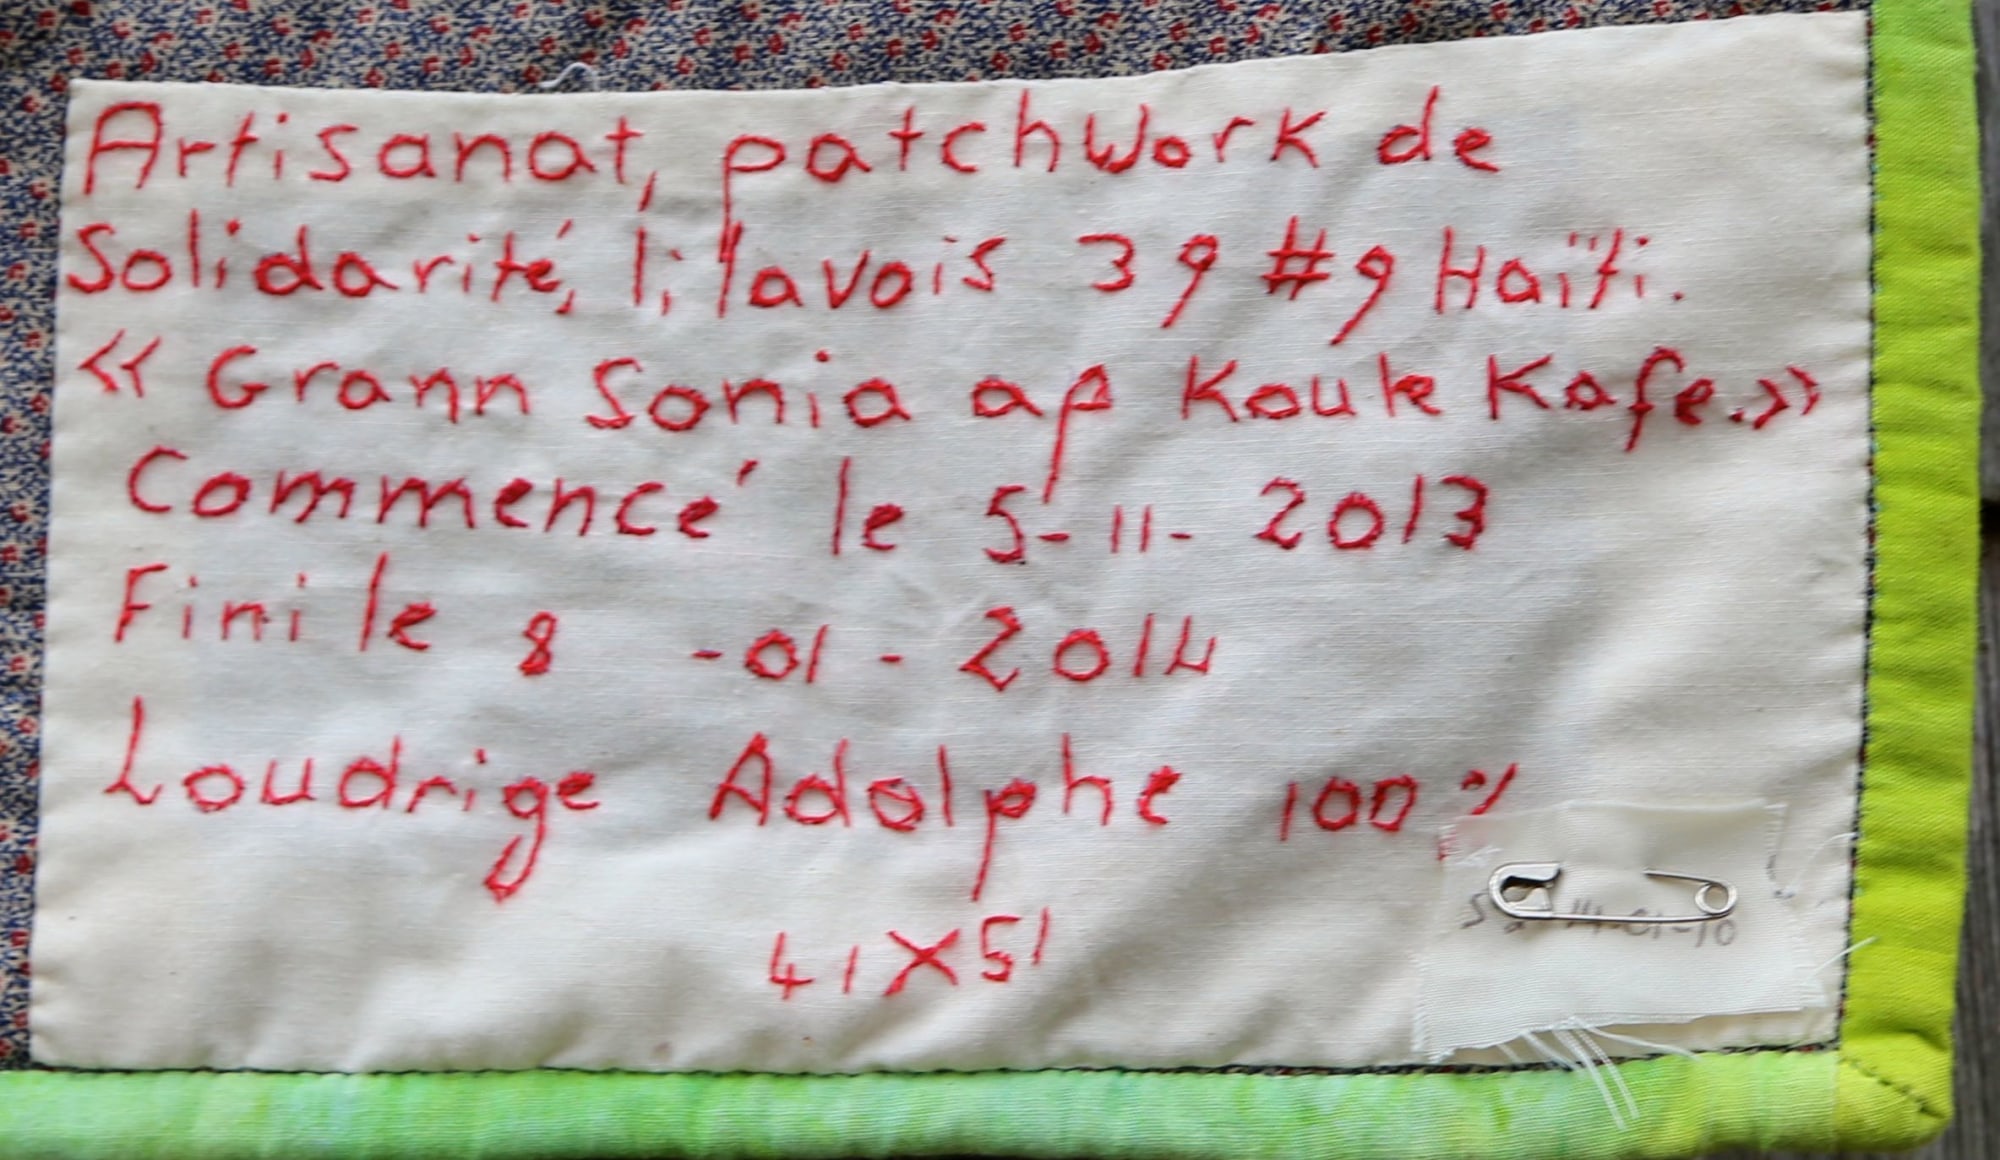 Artisanat, patchwork de
Solidarité, lilavois 39 #9 Haïti.
« Grann Sonia ap Koule Kafe.»
Commencé le 5-11-2013
Fini le 8 -01-2014
Loudrige Adolphe 100%
41X51
14-01-10